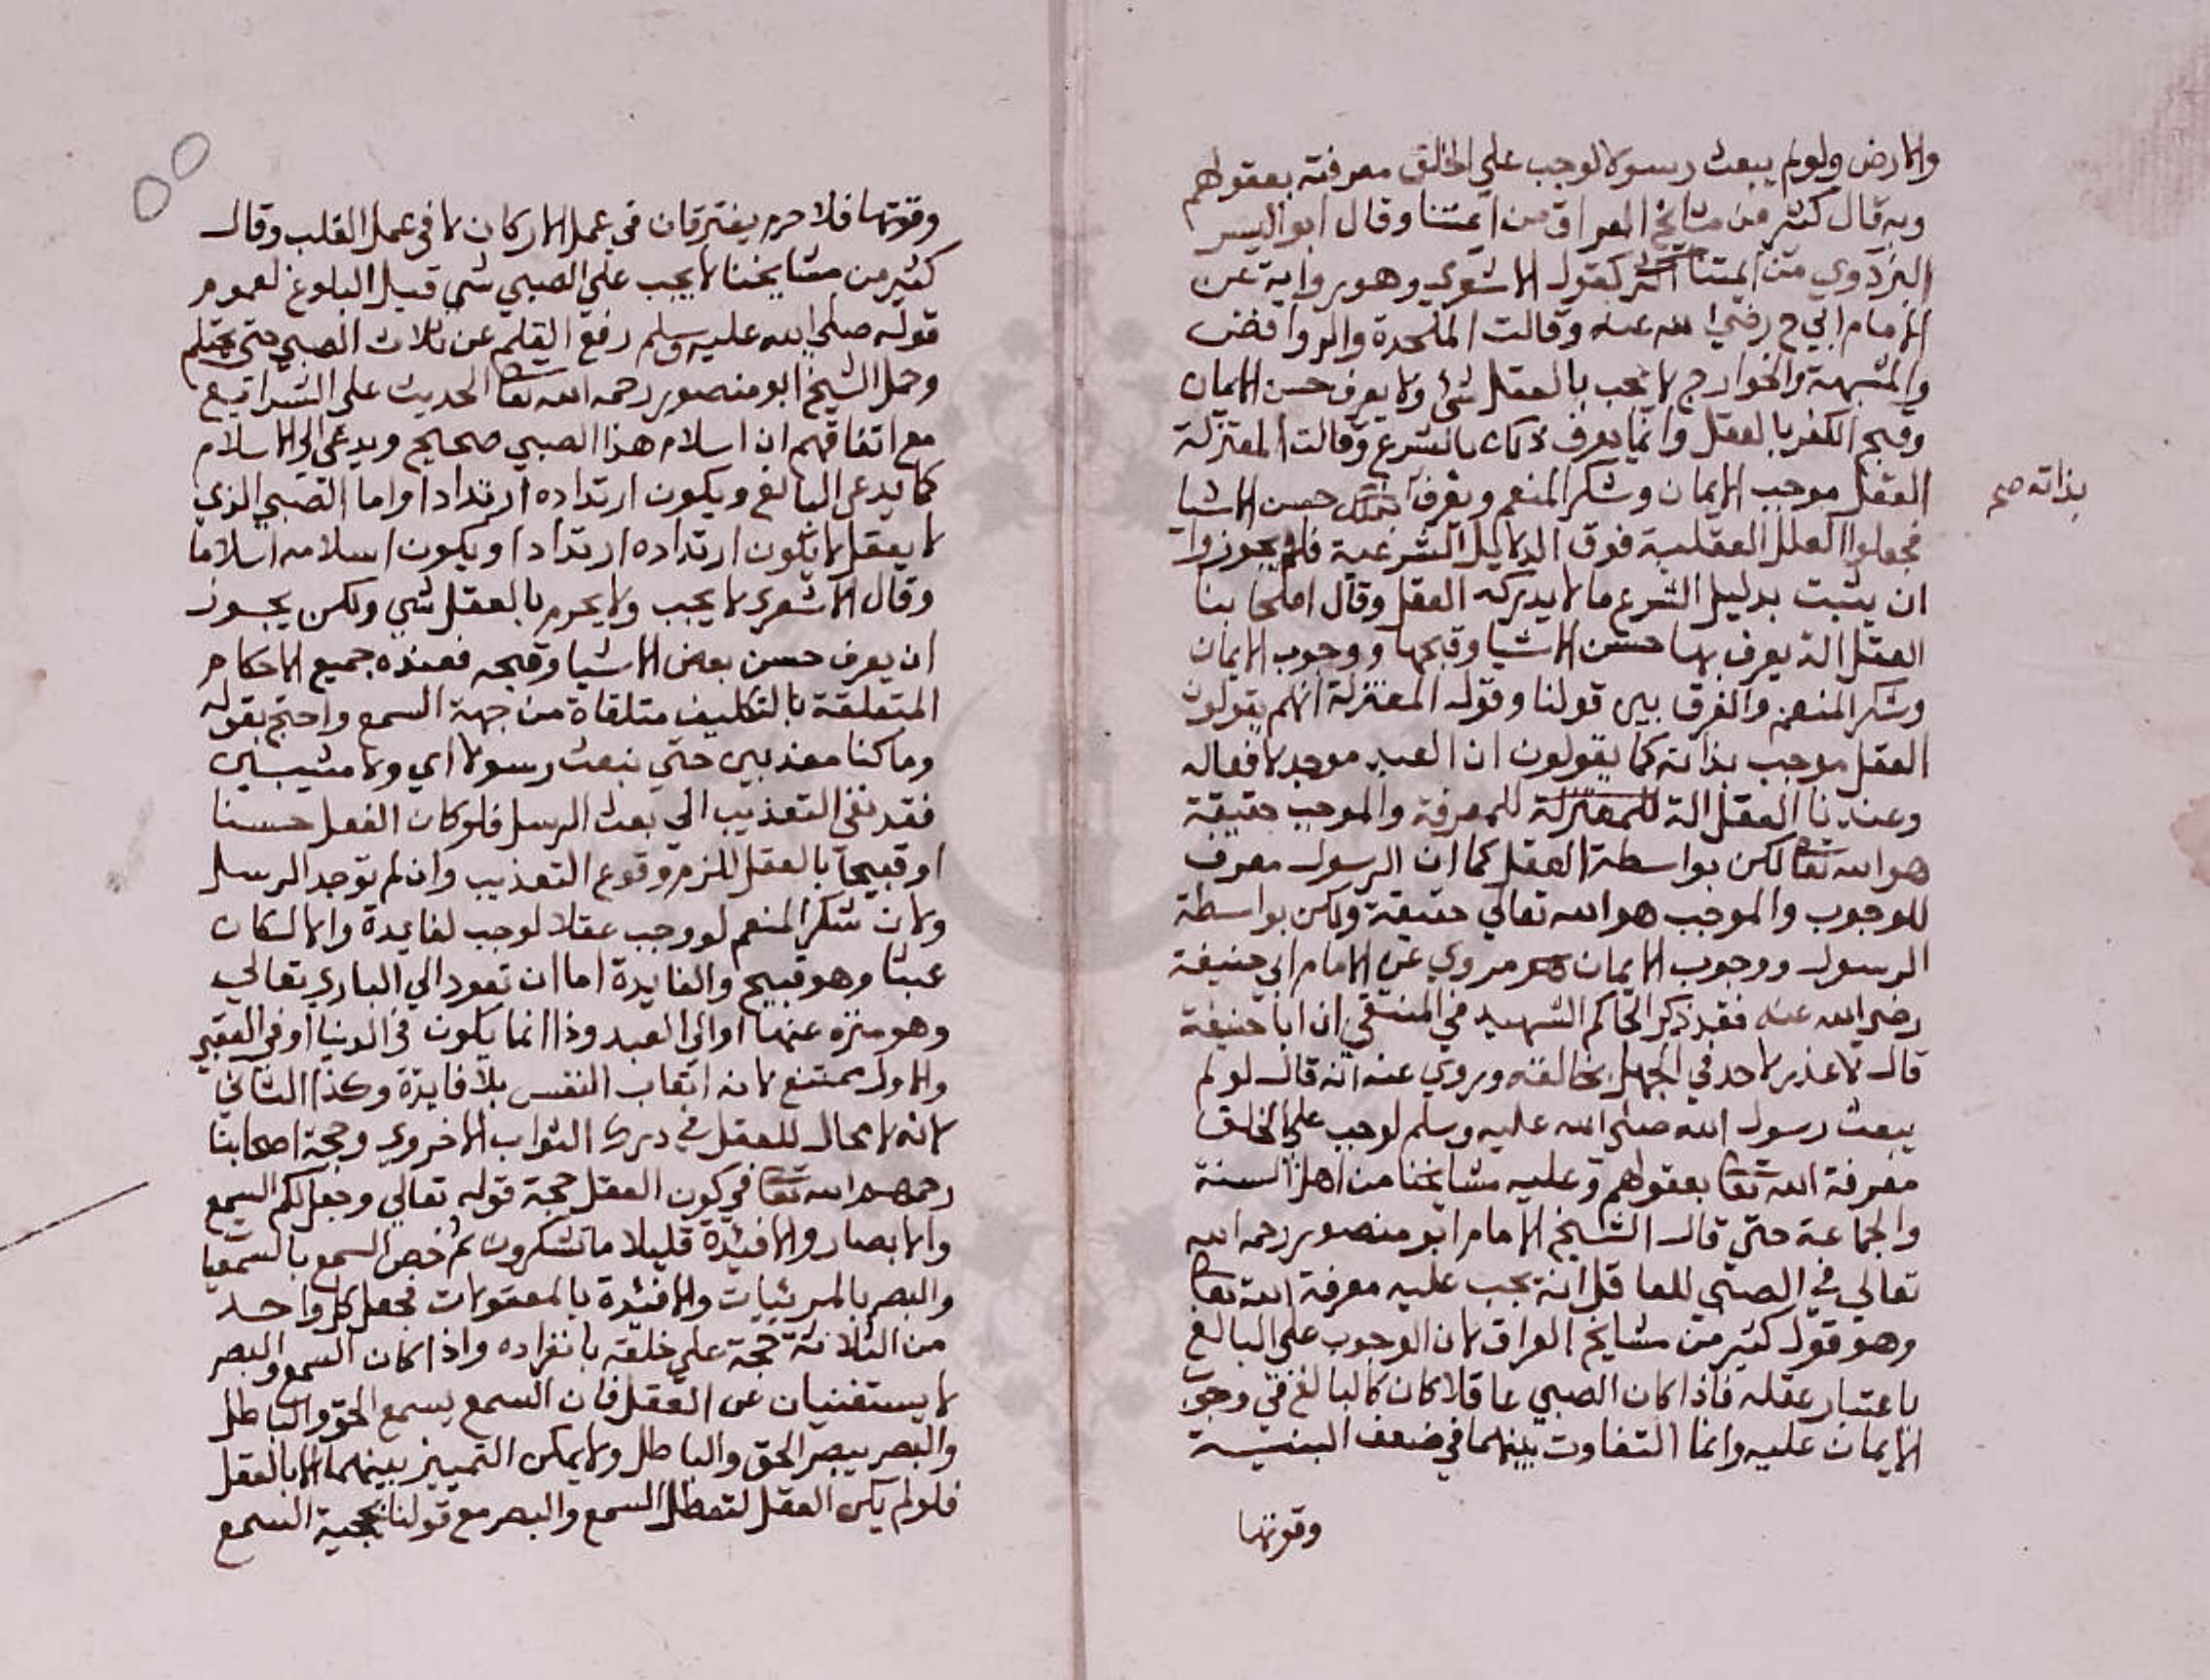 والارض ولولم يبعث رسولا لوجب على الخالق معرفته بعقولهم
وبه قال كثير من مشايخ العراق من أيمتنا وقال ابو اليسر
البزدوي من أيمتنا كقول الاشعري وهو رواية عن
الامام ابي ح رضي الله عنه وقالت الملحدة والروافض
والمشبهة والخوارج لا يجب بالعقل شئ ولا يعرف حسن الايمان
وقبح الكفر بالعقل وانما يعرف ذلك بالشرع وقالت المعتزلة
العقل موجب الايمان وشكر المنعم ويعرف حسن الاشيا
بذاته صح
فجعلوا العلل العقلية فوق الدلايل الشرعية فلم يجوزوا
ان يثبت بدليل الشرع ما لا يدركه العقل وقال اصحابنا
العقل الة يعرف بها حسن الاشيا وقبحها ووجوب الايمان
وشكر المنعم والفرق بين قولنا وقول المعتزلة انهم يقولون
العقل موجب بذاته كما يقولون ان العبد موجد لافعاله
وعندنا العقل الة للمعتزلة للمعرفة والموجب حقيقة
هو الله تعا لكن بواسطة العقل كما ان الرسول معرف
للوجوب والموجب هو الله تعالي حقيقة ولكن بواسطة
الرسول ووجوب الايمان مروي عن الامام ابي حنيفة
رضي الله عنه فقد ذكر الحاكم الشهيد في المنتقي ان ابا حنيفة
قال لا عذر لاحد في الجهل بخالقه وروي عنه انه قال لو لم
يبعث رسول الله صلي الله عليه وسلم لوجب علي الخلق
معرفة الله تعا بعقولهم وعليه مشايخنا من اهل السنة
والجماعة حتي قال الشيخ الامام ابو منصور رحمه الله
تعالي في الصبي للعاقل انه يجب عليه معرفة الله تعا
وهو قول كثير من مشايخ العراق لان الوجوب علي البالغ
باعتبار عقله فاذا كان الصبي عاقلا كان كالبالغ في وجوب
الايمان عليه وانما التفاوت بينهما في ضعف البنية
وقوتها
وقوتها فلا جرم يفترقان في عمل الاركان لا في عمل القلب وقال
كثير من مشايخنا لا يجب علي الصبي شي قبل البلوغ لعموم
قوله صلي الله عليه وسلم رفع القلم عن ثلاث الصبي حتي يحتلم
وحمل الشيخ ابو منصور رحمه الله تعا الحديث علي الشرايع
مع اتفاقهم ان اسلام هذا الصبي صحيح ويدعي الي الاسلام
كما يدعي البالغ ويكون ارتداده ارتدادا واما الصبي الذي
لا يعقل لا يكون ارتداده ارتدادا ويكون اسلامه اسلاما
وقال الاشعري لا يجب ولا يحرم بالعقل شي ولكن يجوز
ان يعرف حسن بعض الاشيا وقبحه فعنده جميع الاحكام
المتعلقة بالتكليف متلقاة من جهة السمع واحتج بقوله
وما كنا معذبين حتي نبعث رسولا اي ولا مثيبين
فقد نفي التعذيب الي بعث الرسل فلو كان الفعل حسنا
او قبيحا بالعقل للزم وقوع التعذيب وان لم توجد الرسل
ولان شكر المنعم لو وجب عقلا لوجب لفايدة والا لكان
عبثا وهو قبيح والفايدة اما ان تعود الي الباري تعالي
وهو منزه عنها او الي العبد وذا انما يكون في الدنيا او في العقبي
والاول ممتنع لانه اتعاب النفس بلا فايدة وكذا الثاني
لانه لا مجال للعقل في درك الثواب الاخروي وحجة اصحابنا
رحمهم الله تعا في كون العقل حجة قوله تعالي وجعل لكم السمع
والابصار والافيئدة قليلا ما تشكرون ثم خص السمع بالسمعيا
والبصر بالمرئيات والافئدة بالمعقولات فجعل كل واحد
من الثلاثة حجة علي خلقه بانفراده واذا كان السمع والبصر
لا يستغنيان عن العقل فان السمع يسمع الحق والباطل
والبصر يبصر الحق والباطل ولا يمكن التمييز بينهما الا بالعقل
فلو لم يكن العقل لتعطل السمع والبصر مع قولنا بحجية السمع